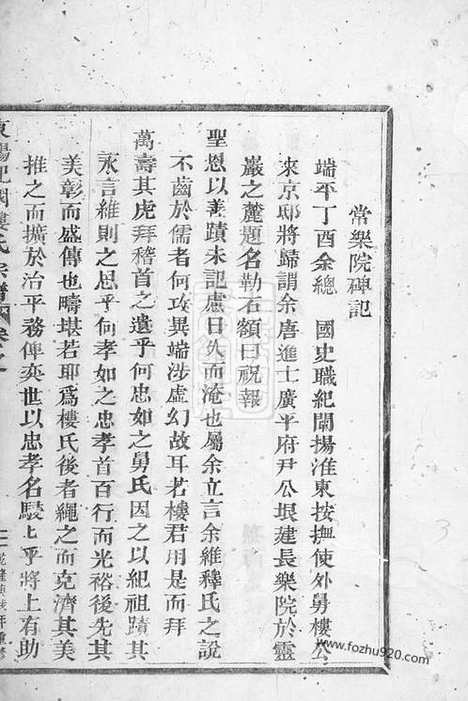 常樂院碑記
端平丁酉余總 國史職紀闡揚淮東按撫使外舅樓公
來京邸將歸謂余唐進士廣平府尹公垠建長樂院於靈
巖之麓題名勒石額曰祝報
聖恩以善蹟未記慮日久而淹也屬余立言余維釋氏之說
不齒於儒者何攻異端涉虛幻故耳若樓君用是而拜
萬壽其虎拜稽首之遺乎何忠如之舅氏因之以紀祖蹟其
永言維則之思乎何孝如之忠孝首百行而光裕後先其
美彰而盛傳也疇堪若耶爲樓氏後者繩之而克濟其美
推之而擴於治平務俾奕世以忠孝名駿上乎將上有助
樓氏宗譜 卷之
乾隆
www.fozhu920.com
3